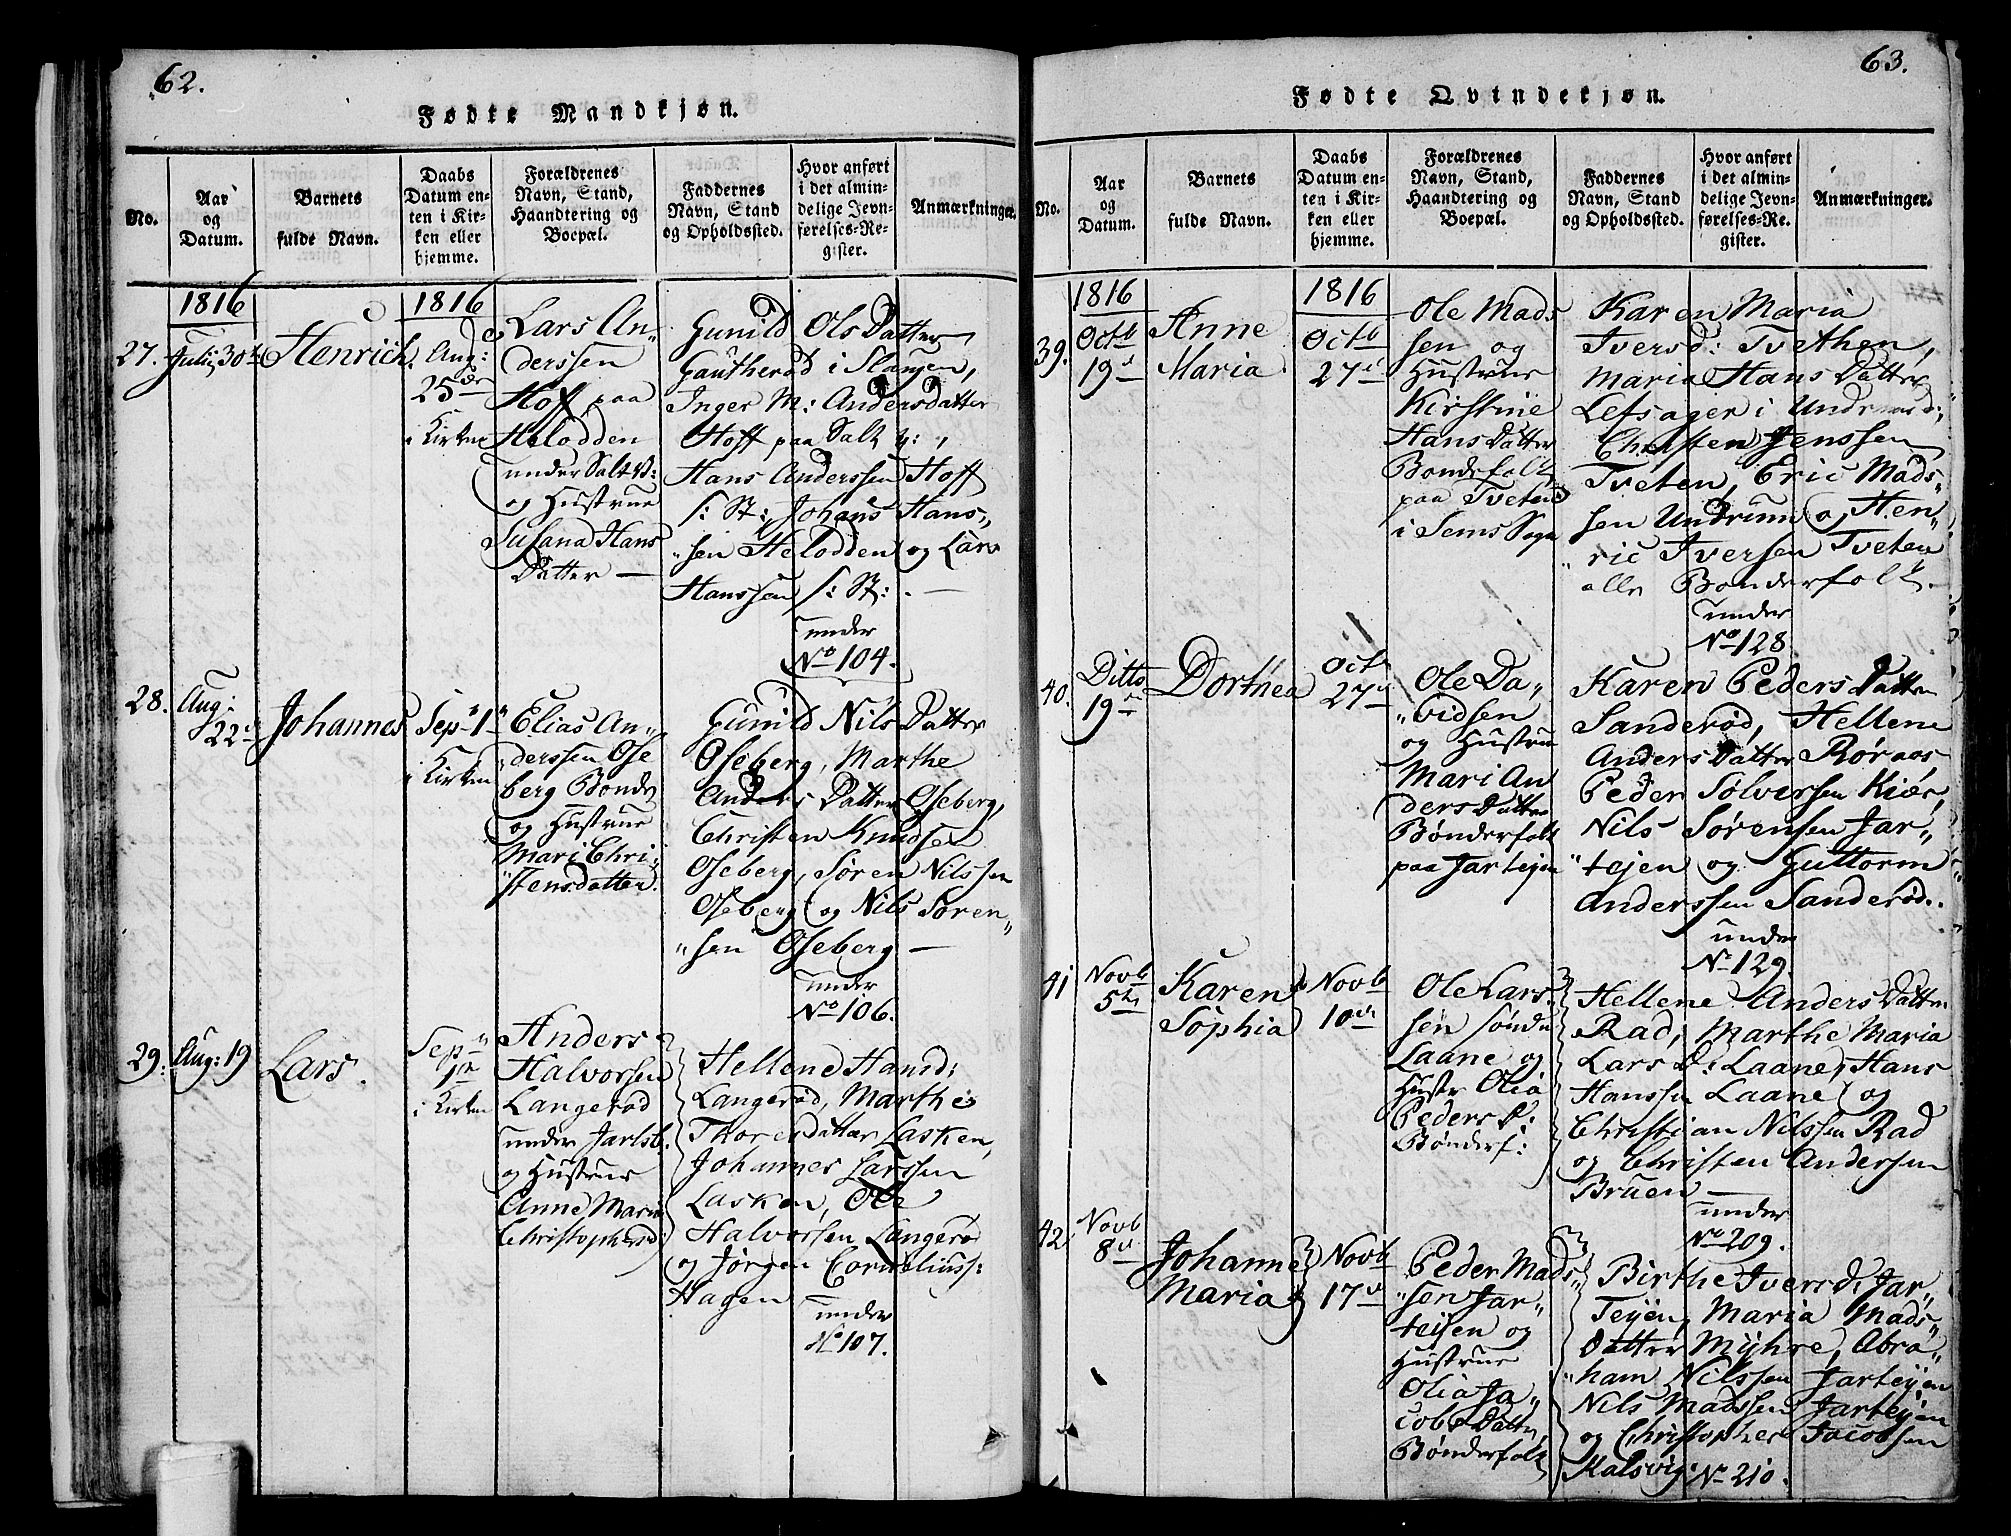 62.
Fødte Mandkjøn.
No.
Aar
og
Datum.
Barnets
fulde Navn.
Daabs
Datum en-
ten i Kir-
ken eller
hjemme.
Forældrenes
Navn, Stand,
Haandtering og
Boepæl.
Faddernes
Navn, Stand
og Opholdssted.
Hvor anført
i det almin-
delige Jevn-
førelses-Re-
gister.
Anmærkninger.
1816
1816
27.
Julii 30te
Henrich.
Aug:
25de
i Kirken
Lars An-
derssen
Hoff paa
Helodden
under Salt V:
og Hustrue
Susana Hans
Datter —
Gunild Ols Datter
Gautherød i Slangen,
Inger M: Andersdatter
Hoff paa Salt v:,
Hans Anderssen Hoff
s: St:, Johans Hans-
sen Helodden og Lars
Hanssen s: St: . —
under
No 104.
28.
Aug:
22de
Johannes
Sep. 1
i Kirken
Elias An-
derssen Ose
berg Bonde
og Hustrue
Mari Chri-
stensdatter.
Gunild Nils Datter
Oseberg, Marthe
Anders Datter Oseberg,
Christen Knudsen
Oseberg, Søren Nilssen
Oseberg og Nils Søren-
sen Oseberg —
under
No 106.
29.
Aug: 19
Lars.
Sep
1ste
i Kirken
Anders
Halvorsen
Langerød
under Jarlsb.
og Hustrue
Anne Maria
Christophersd:
Hellene Hansd:
Langerød, Marthe
Thoresdatter Lasken,
Johannes Larssen
Lasken, Ole
Halvorsen Langerød
og Jørgen Corneliuss:
Hagen
under
No 107.
63.
Fødte Qvindekjøn.
No.
Aar
og
Datum.
Barnets
fulde Navn.
Daabs
Datum en-
ten i Kir-
ken eller
hjemme.
Forældrenes
Navn, Stand,
Haandtering og
Boepæl.
Faddernes
Navn, Stand
og Opholdssted.
Hvor anført
i det almin-
delige Jevn-
førelses-Re-
gister.
Anmærkninger.
1816
1816
39.
Octb
19d
Anne
Maria
Octb
27d
Ole Mads
sen og
Hustrue
Kirstine
Hans Datter
Bondefolk
paa Tveten
i Sems Sogn
Karen Maria
Iversd: Tvethen,
Maria Hans Datter
Lefsager i
Christen Jenssen
Tveten, Eric Mads-
sen Undrum og Hen-
ric Iversen Tveten
alle Bønderfolk.
under
No 128.
40.
Ditto
19
Dorthea
Oct
27d
Ole Da-
vidsen
og Hustrue
Mari An
ders Datter
Bønderfolk
paa Jarteyen
Karen Peders Datter
Sanderød, Hellene
Anders Datter Røraas
Peder Sølversen Kiær,
Nils Sørensen Jar-
tejen og Guttorm
Anderssen Sanderød.
under
No 129.
41
Novb
5te
Karen
Sophia
Novb
10de
Ole Lars-
sen søndr
Laane og
Hustr Olia
Peders D:
Bønderf:
Hellene Anders Datter
Rad, Marthe Maria
Lars D: Laane, Hans
Hanssen Laane og
Christian Nilssen Rad
og Christen Andersen
Bruen —
under
No 209.
42
Novb
8d
Johanne
Maria
Novb
17d
Peder Mads-
sen Jar-
teijen og
Hustrue
Olia Ja-
cobs Datter
Bønderfolk
Birthe Iversd, Jar-
Teijen, Maria Mads-
Datter Myhre, Abra-
ham Nilssen Jarteijen
Nils Madssen Jarteijen
og Christopher Jacobsen
Kalsvig. No 210.